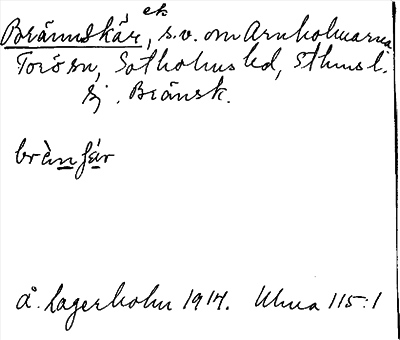 ek
Brännskär, s.v. om Arnholmarna
Torö sn, Sotholms hd, Sthms l.
Ej. Bränsk.
brànſár
Å. Lagerholm 1914. Uhua 115:1